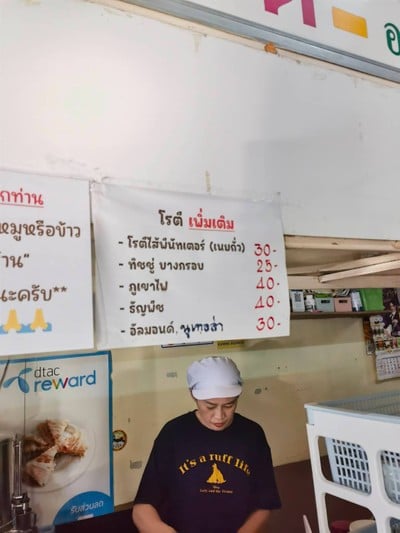 อ
กท่าน
หมูหรือข้าว
าน"
นะครับ**
โรตี เพิ่มเติม
- โรตีไส้พีนัทเตอร์ (เนยถั่ว) 30.-
- ทิชชู่ บางกรอบ 25.-
- ภูเขาไฟ 40.-
- ธัญพืช 40.-
- อัลมอนด์, นูเทลล่า 30.-
dtac
reward
รับส่วนลด
It's a ruff life